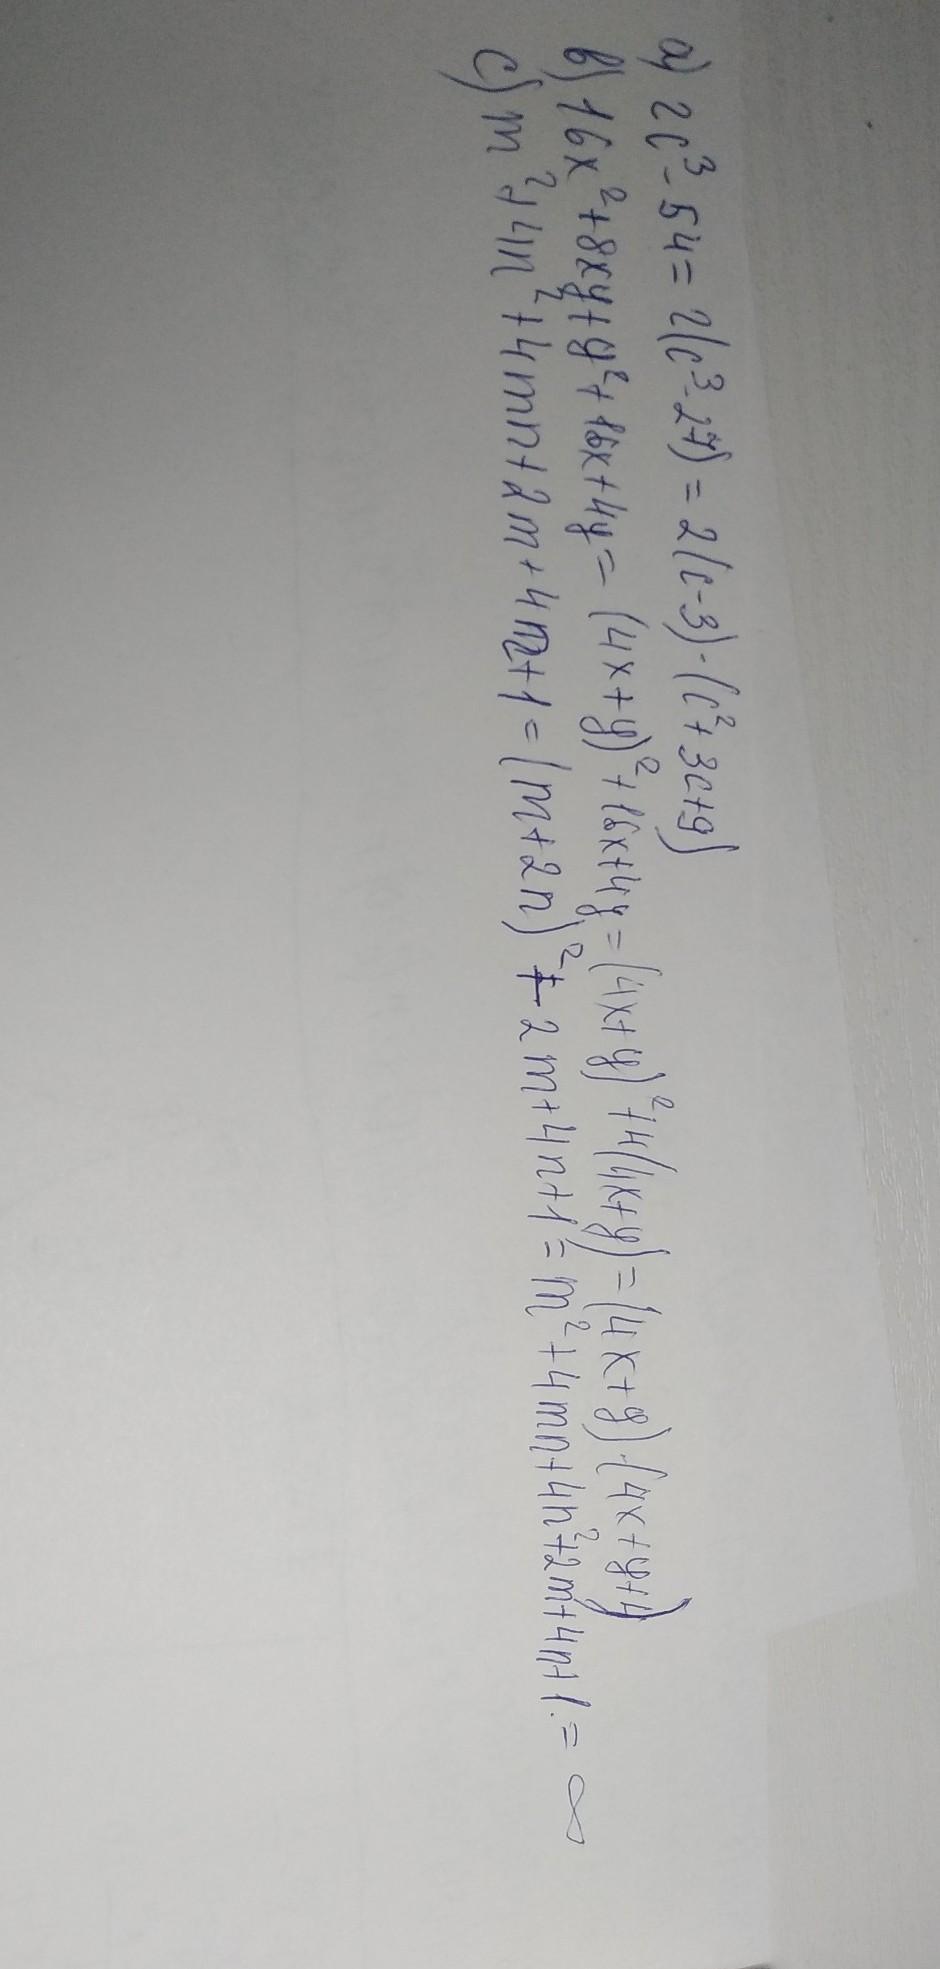 a) 2c³ - 54 = 2(c³-27) = 2(c-3)·(c²+3c+9)
b) 16x²+8xy+y²+16x+4y = (4x+y)²+16x+4y = (4x+y)²+4(4x+y) = (4x+y)·(4x+y+4)
c) m²+4n²+4mn+2m+4n+1 = (m+2n)²+2m+4n+1 = m²+4mn+4n²+2m+4n+1. = ∞